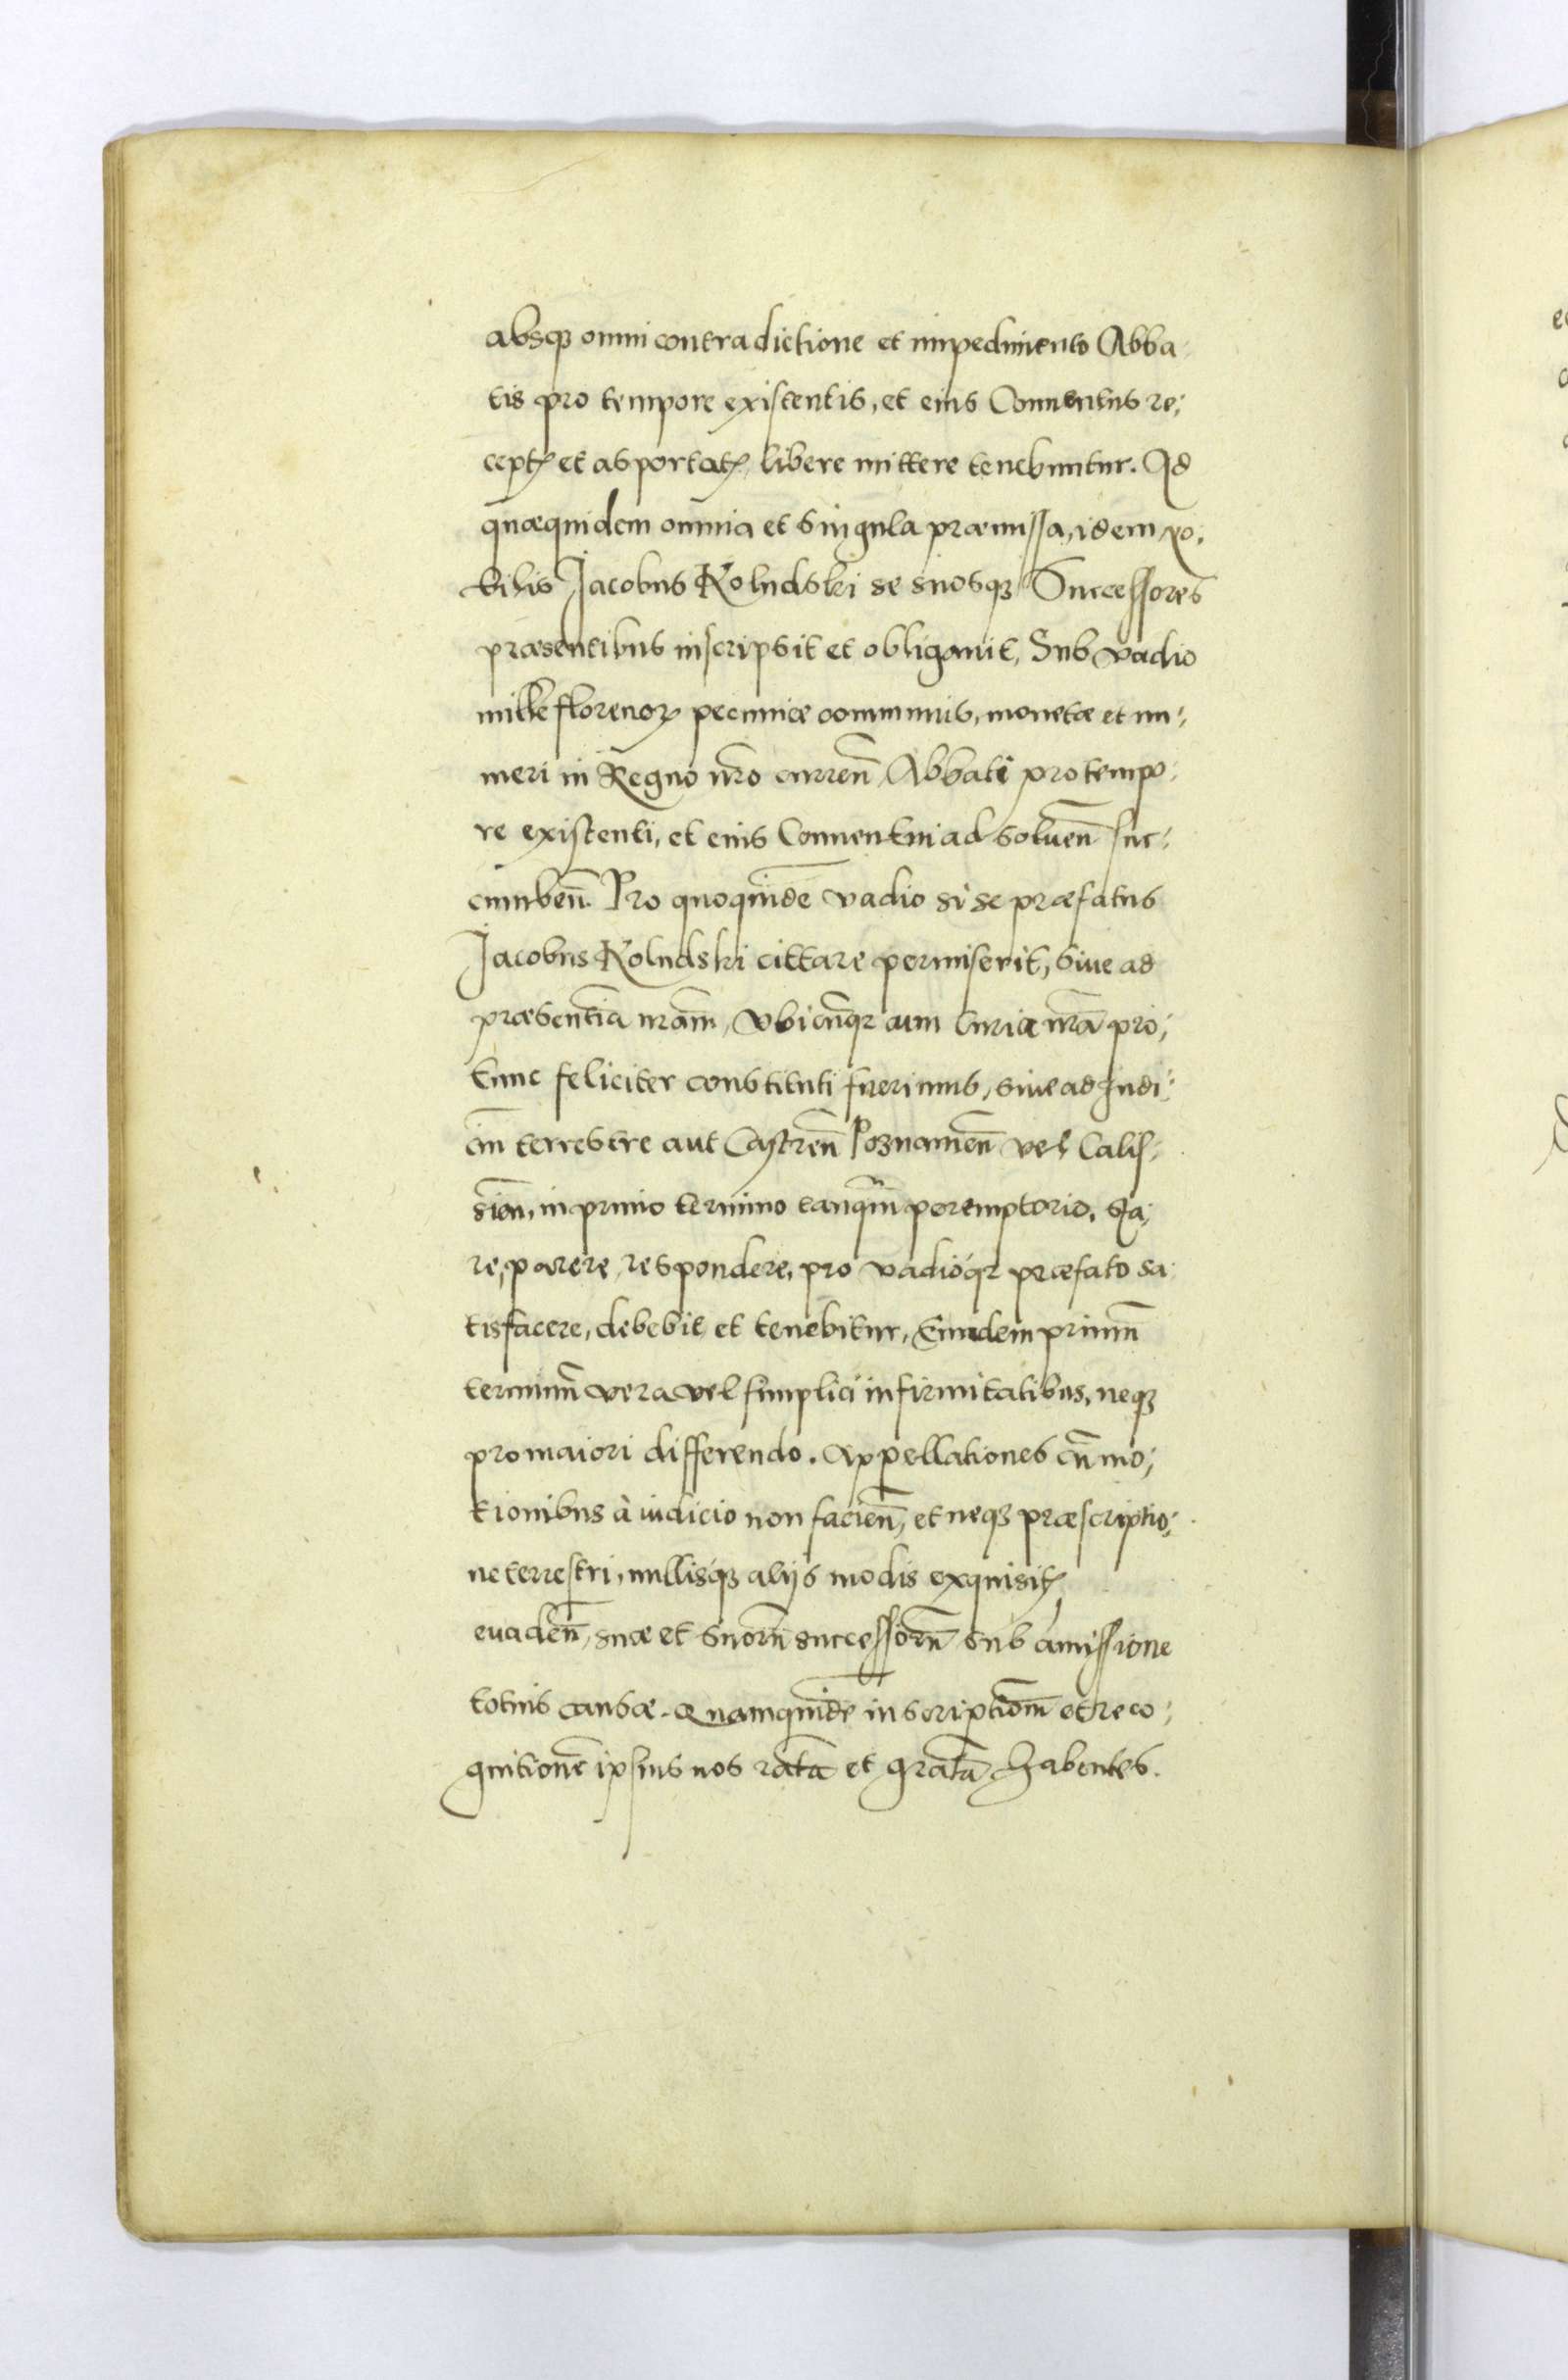 absq̃ omni contradictione et impedimento Abba-
tis pro tempore existentis, et eius Conuentus re-
cept̃ et asportat̃ libere mittere tenebuntur. Ad
quæquidem omnia et singula præmissa, idem No-
bilis Jacobus Koludski se suosq̃ Successores
præsentibus inscripsit et obligauit, Sub vadio
mille florenoꝝ pecuniæ communis, monetæ et nu-
meri in Regno nr̃o curren̄ Abbati pro tempo-
re existenti, et eius Conuentui ad soluen̄ suc-
cumben̄. Pro quoquidē vadio si se præfatus
Jacobus Koludski cittare permiserit, siue ad
præsentiā nr̃am, vbicunqȝ cum Curia nr̃a pro-
tunc feliciter constituti fuerimus, siue ad Judi-
ciū terrestre aut Castren̄ Poznanien̄ vel Calis-
sien̄, in primo termino tanquā peremptorio, sta-
re, parere, respondere, pro vadioqȝ præfato sa-
tisfacere, debebit et tenebitur, Eundem primū
terminū vera vel simplici infirmitatibus, neqȝ
pro maiori differendo. Appellationes cū mo-
tionibus à iudicio non facien̄, et neqȝ præscriptio-
ne terrestri, nullisqȝ alijs modis exquisit̃
euaden̄, suæ et suorū successorū sub amissione
totius causæ. Quamquidē inscriptionē et reco-
gnitionē ipsius nos ratā et gratā habentes.